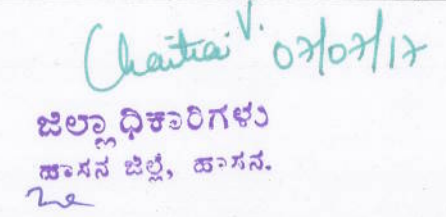 Chaitra V. 07/07/17
ಜಿಲ್ಲಾಧಿಕಾರಿಗಳು
ಹಾಸನ ಜಿಲ್ಲೆ, ಹಾಸನ.